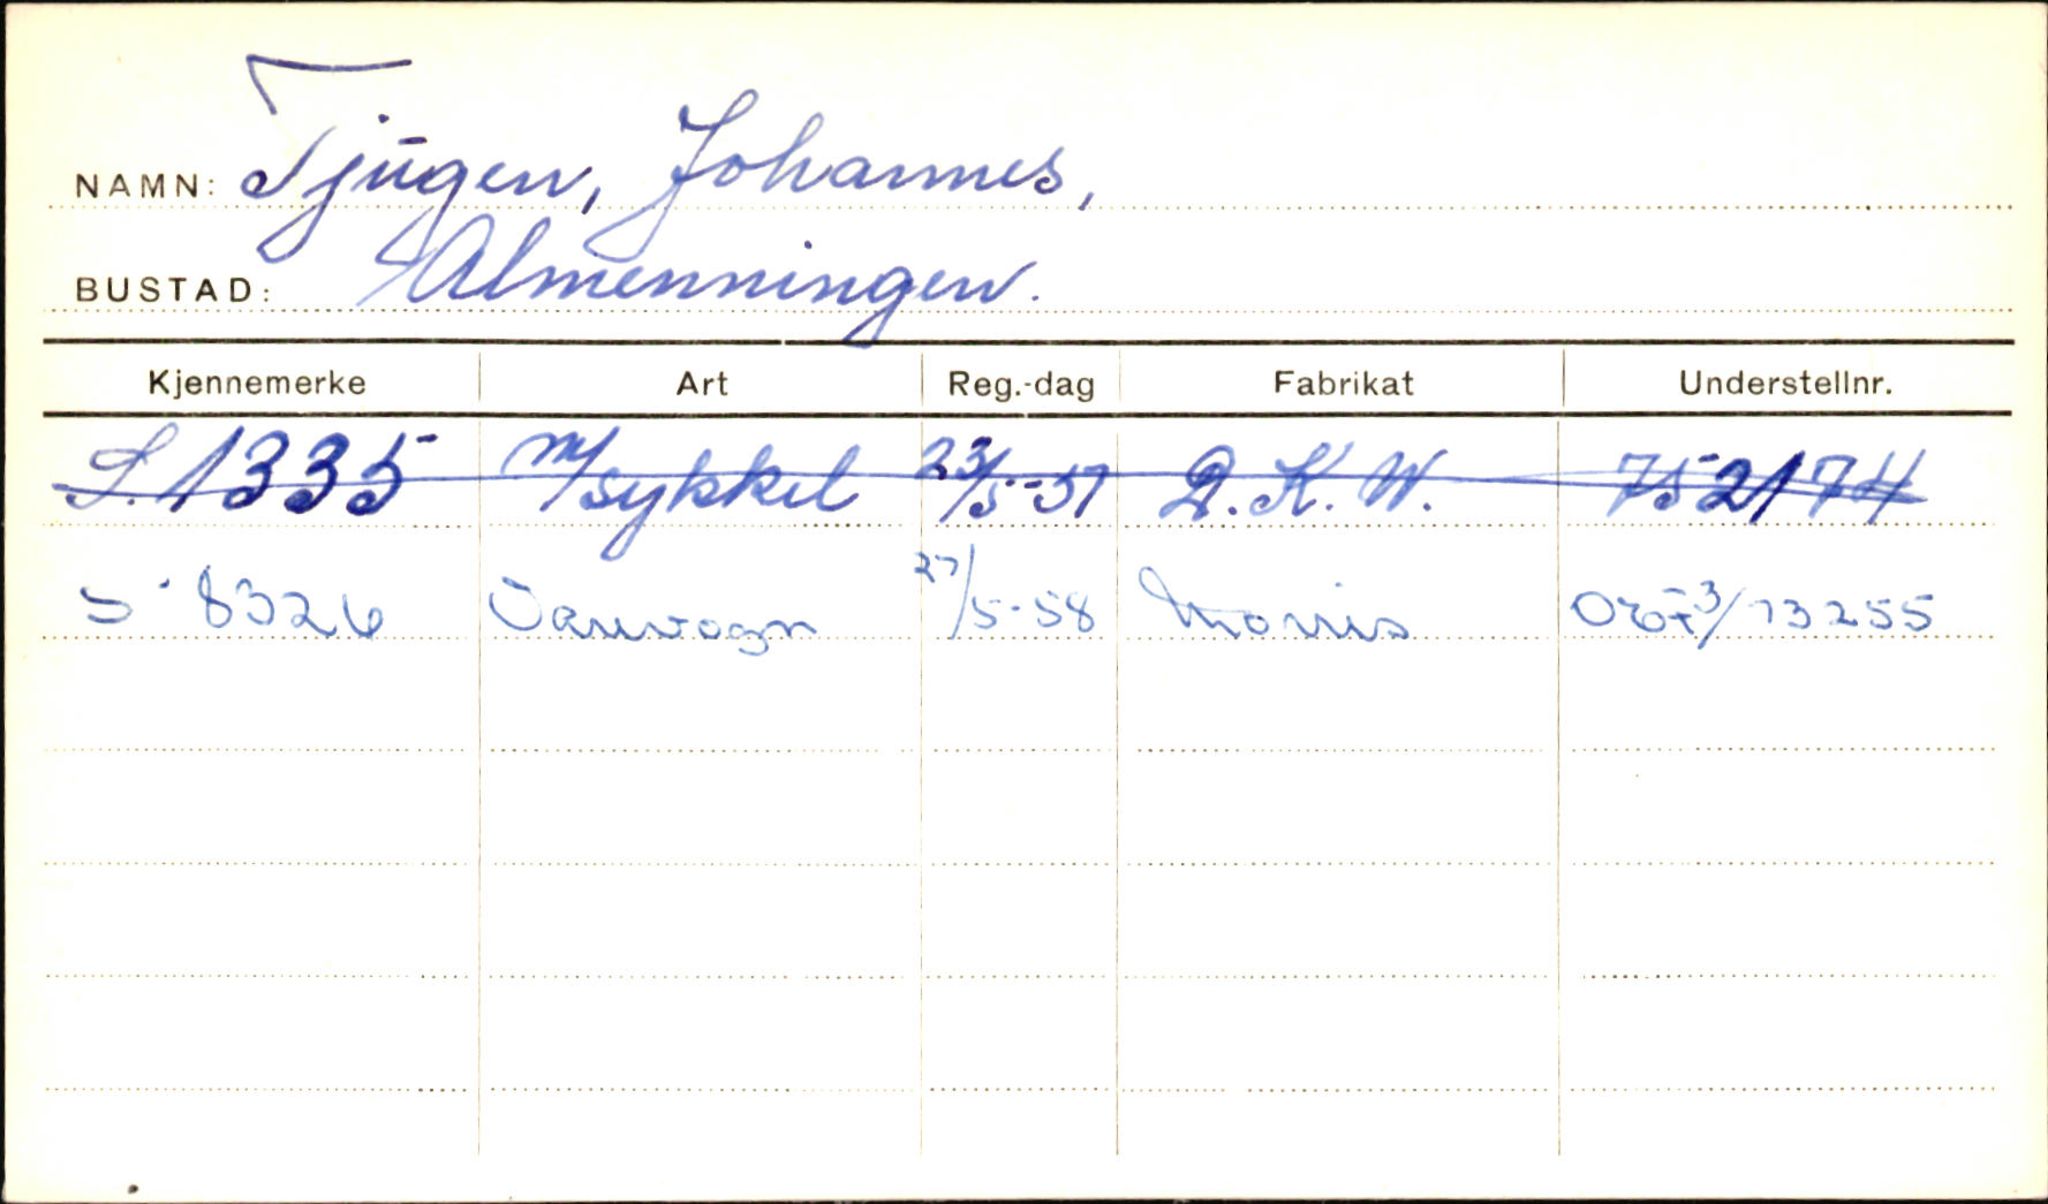 NAMN: Tjugen, Johannes,
BUSTAD: Almenningen.
Kjennemerke Art Reg.-dag Fabrikat Understellnr.
S. 1335 m/sykkel 23/5-57 D.K.W. 752174
S-8326 Varevogn 27/5-58 Morris /13255